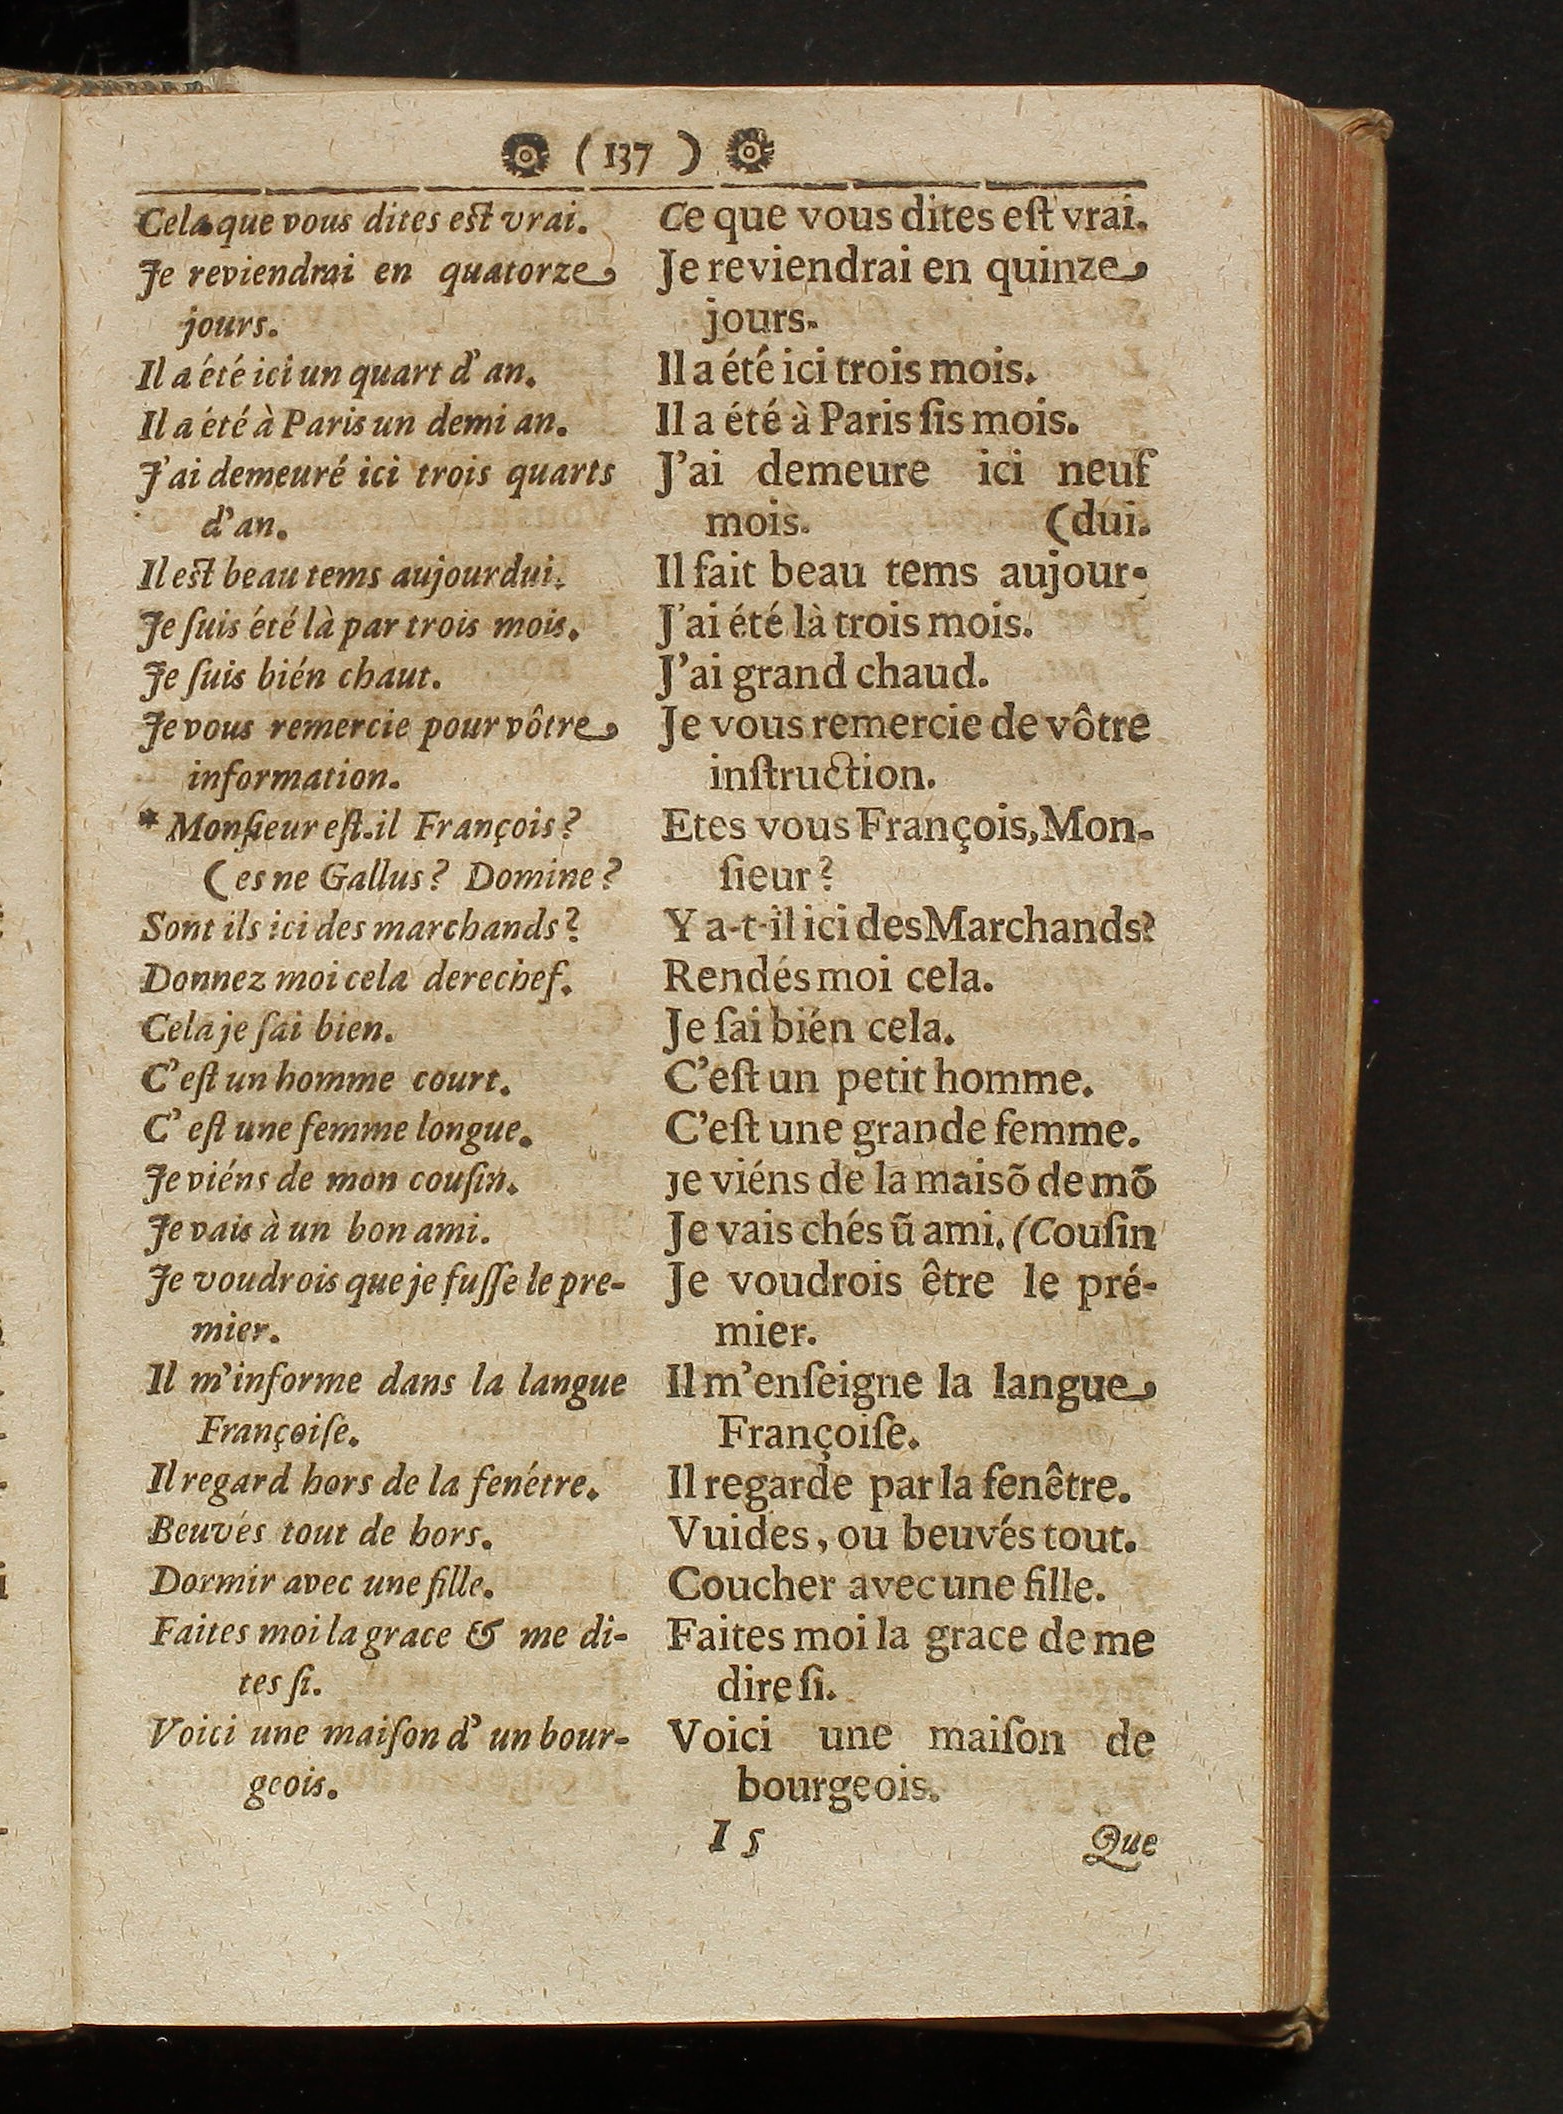 ( 137 )
Cela que vous dites est vrai.
Je reviendrai en quatorze
jours.
Il a été ici un quart d' an.
Il a été à Paris un demi an.
J'ai demeuré ici trois quarts
d'an.
Il est beau tems aujourdui.
Je ſuis été là par trois mois.
Je ſuis bién chaut.
Je vous remercie pour vôtre
information.
* Monſieur eſt-il François?
(es ne Gallus? Domine?
Sont ils ici des marchands?
Donnez moi cela derechef.
Cela je ſai bien.
C'eſt un homme court.
C' eſt une femme longue.
Je viéns de mon couſin.
Je vais à un bon ami.
Je voudrois que je fuſſe le pre-
mier.
Il m'informe dans la langue
Françoiſe.
Il regard hors de la fenétre.
Beuvés tout de hors.
Dormir avec une fille.
Faites moi la grace & me di-
tes ſi.
Voici une maiſon d' un bour-
geois.
Ce que vous dites eſt vrai.
Je reviendrai en quinze
jours.
Il a été ici trois mois.
Il a été à Paris ſis mois.
J'ai demeure ici neuf
mois. (dui.
Il fait beau tems aujour-
J'ai été là trois mois.
J'ai grand chaud.
Je vous remercie de vôtre
inſtruction.
Etes vous François, Mon-
ſieur?
Y a-t-il ici des Marchands?
Rendés moi cela.
Je ſai bién cela.
C'eſt un petit homme.
C'eſt une grande femme.
Je viéns de la maisõ de mõ
Je vais chés ũ ami. (Couſin
Je voudrois être le pré-
mier.
Il m'enſeigne la langue
Françoiſe.
Il regarde par la fenêtre.
Vuides, ou beuvés tout.
Coucher avec une fille.
Faites moi la grace de me
dire ſi.
Voici une maiſon de
bourgeois.
I 5 Que